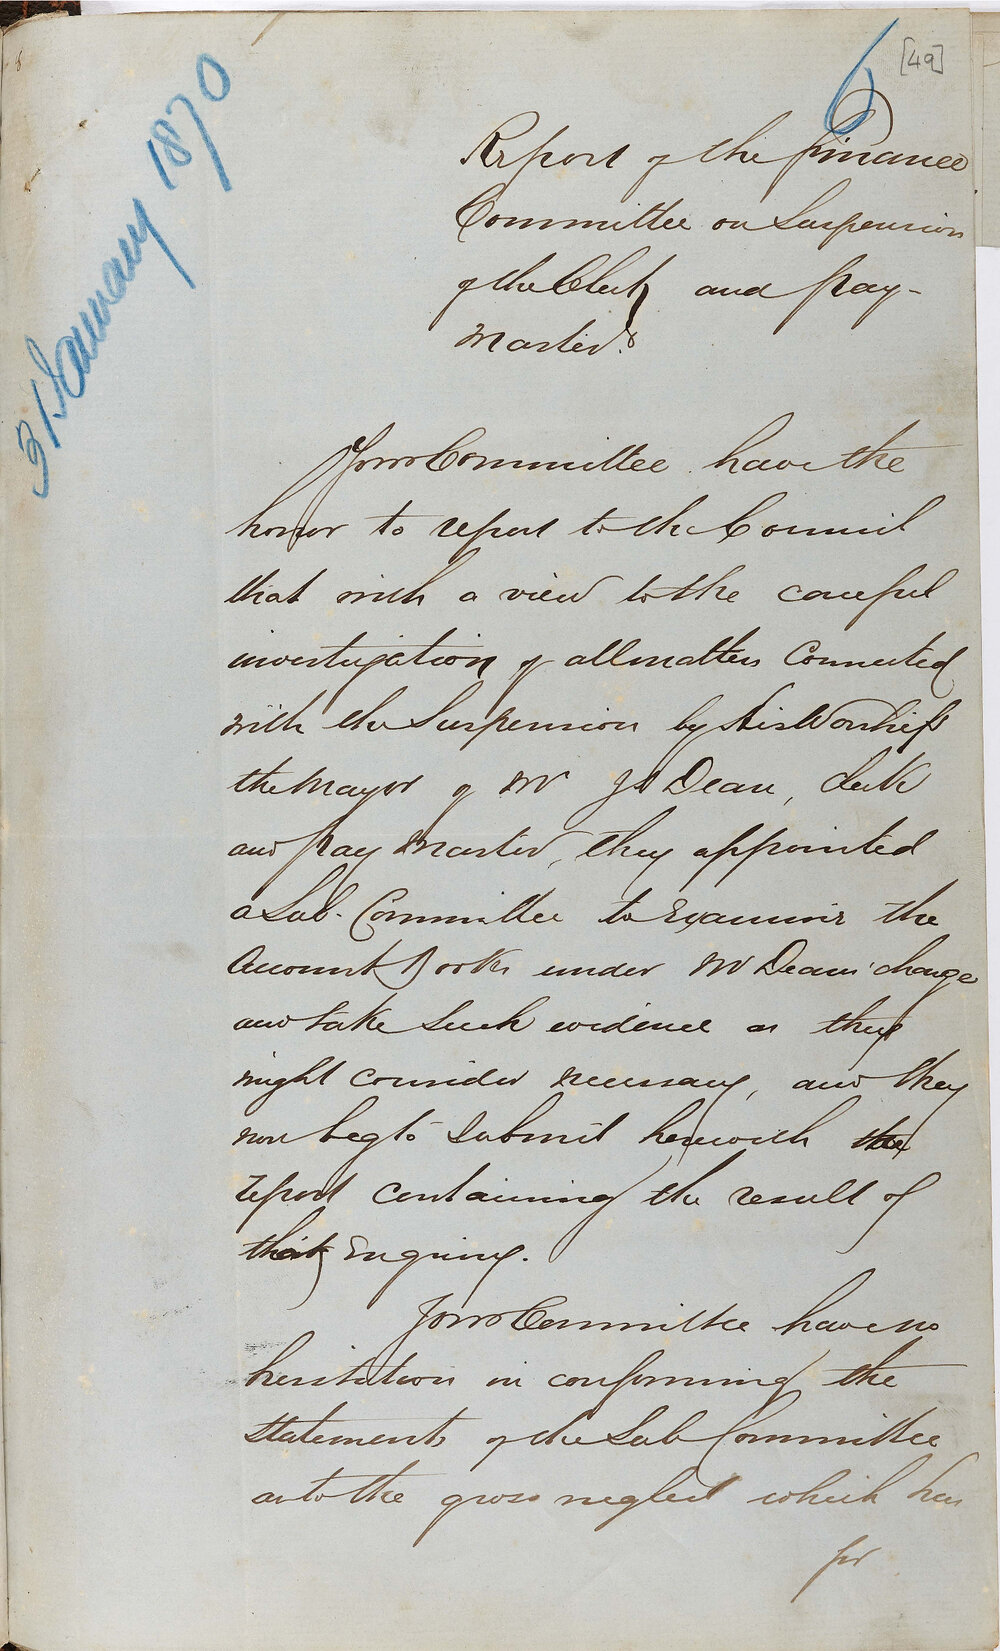 6
[49]
31 January 1870
Report of the Finance
Committee on Suspension
of the Clerk and Pay-
Master.
Your Committee have the
honor to report to the Council
that with a view to the careful
investigation of all matters connected
with the Suspension by His Worship
the Mayor of Mr Js Dean, Clerk
and Pay Master, they appointed
a Sub-Committee to Examine the
Account Books under Mr Deans' charge
and take such evidence as they
might consider necessary, and they
now beg to submit herewith the
report containing the result of
that Enquiry.
Your Committee have no
hesitation in confirming the
statements of the Sub Committee
as to the gross neglect which has
for